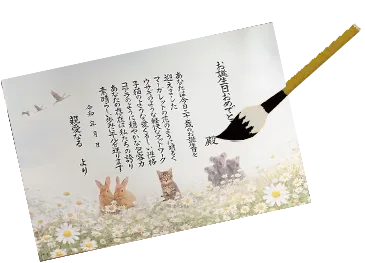 お誕生日おめでとう
殿
あなたは今日二十歳のお誕生日を
迎えました
マーガレットの花のように明るく
ウサギのような軽快なフットワーク
子猫のような愛くるしい性格
コアラのように穏やかな包容力
あなたの存在は私たちの誇り
素晴らしい歩み
を送ります
令和 年 月 日
親愛なる より